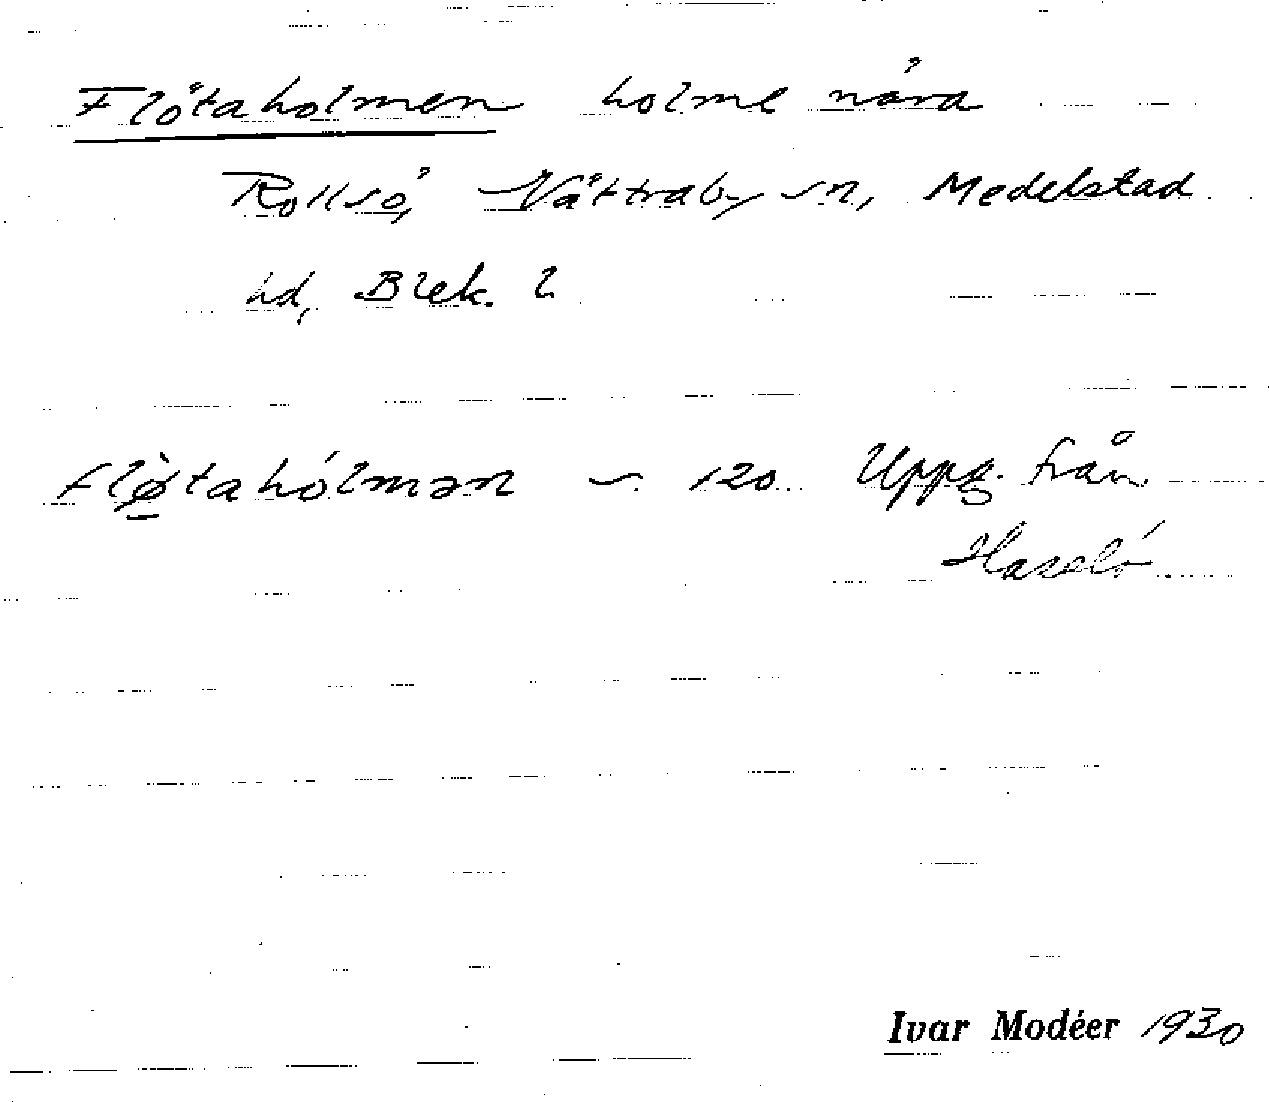 Flötaholmen holme nära
Rollsö, Nättraby sn, Medelstad
hd, Blek. l
flø̀tahólmən ~ 120 Uppg. från
Haselö
Ivar Modéer 1930